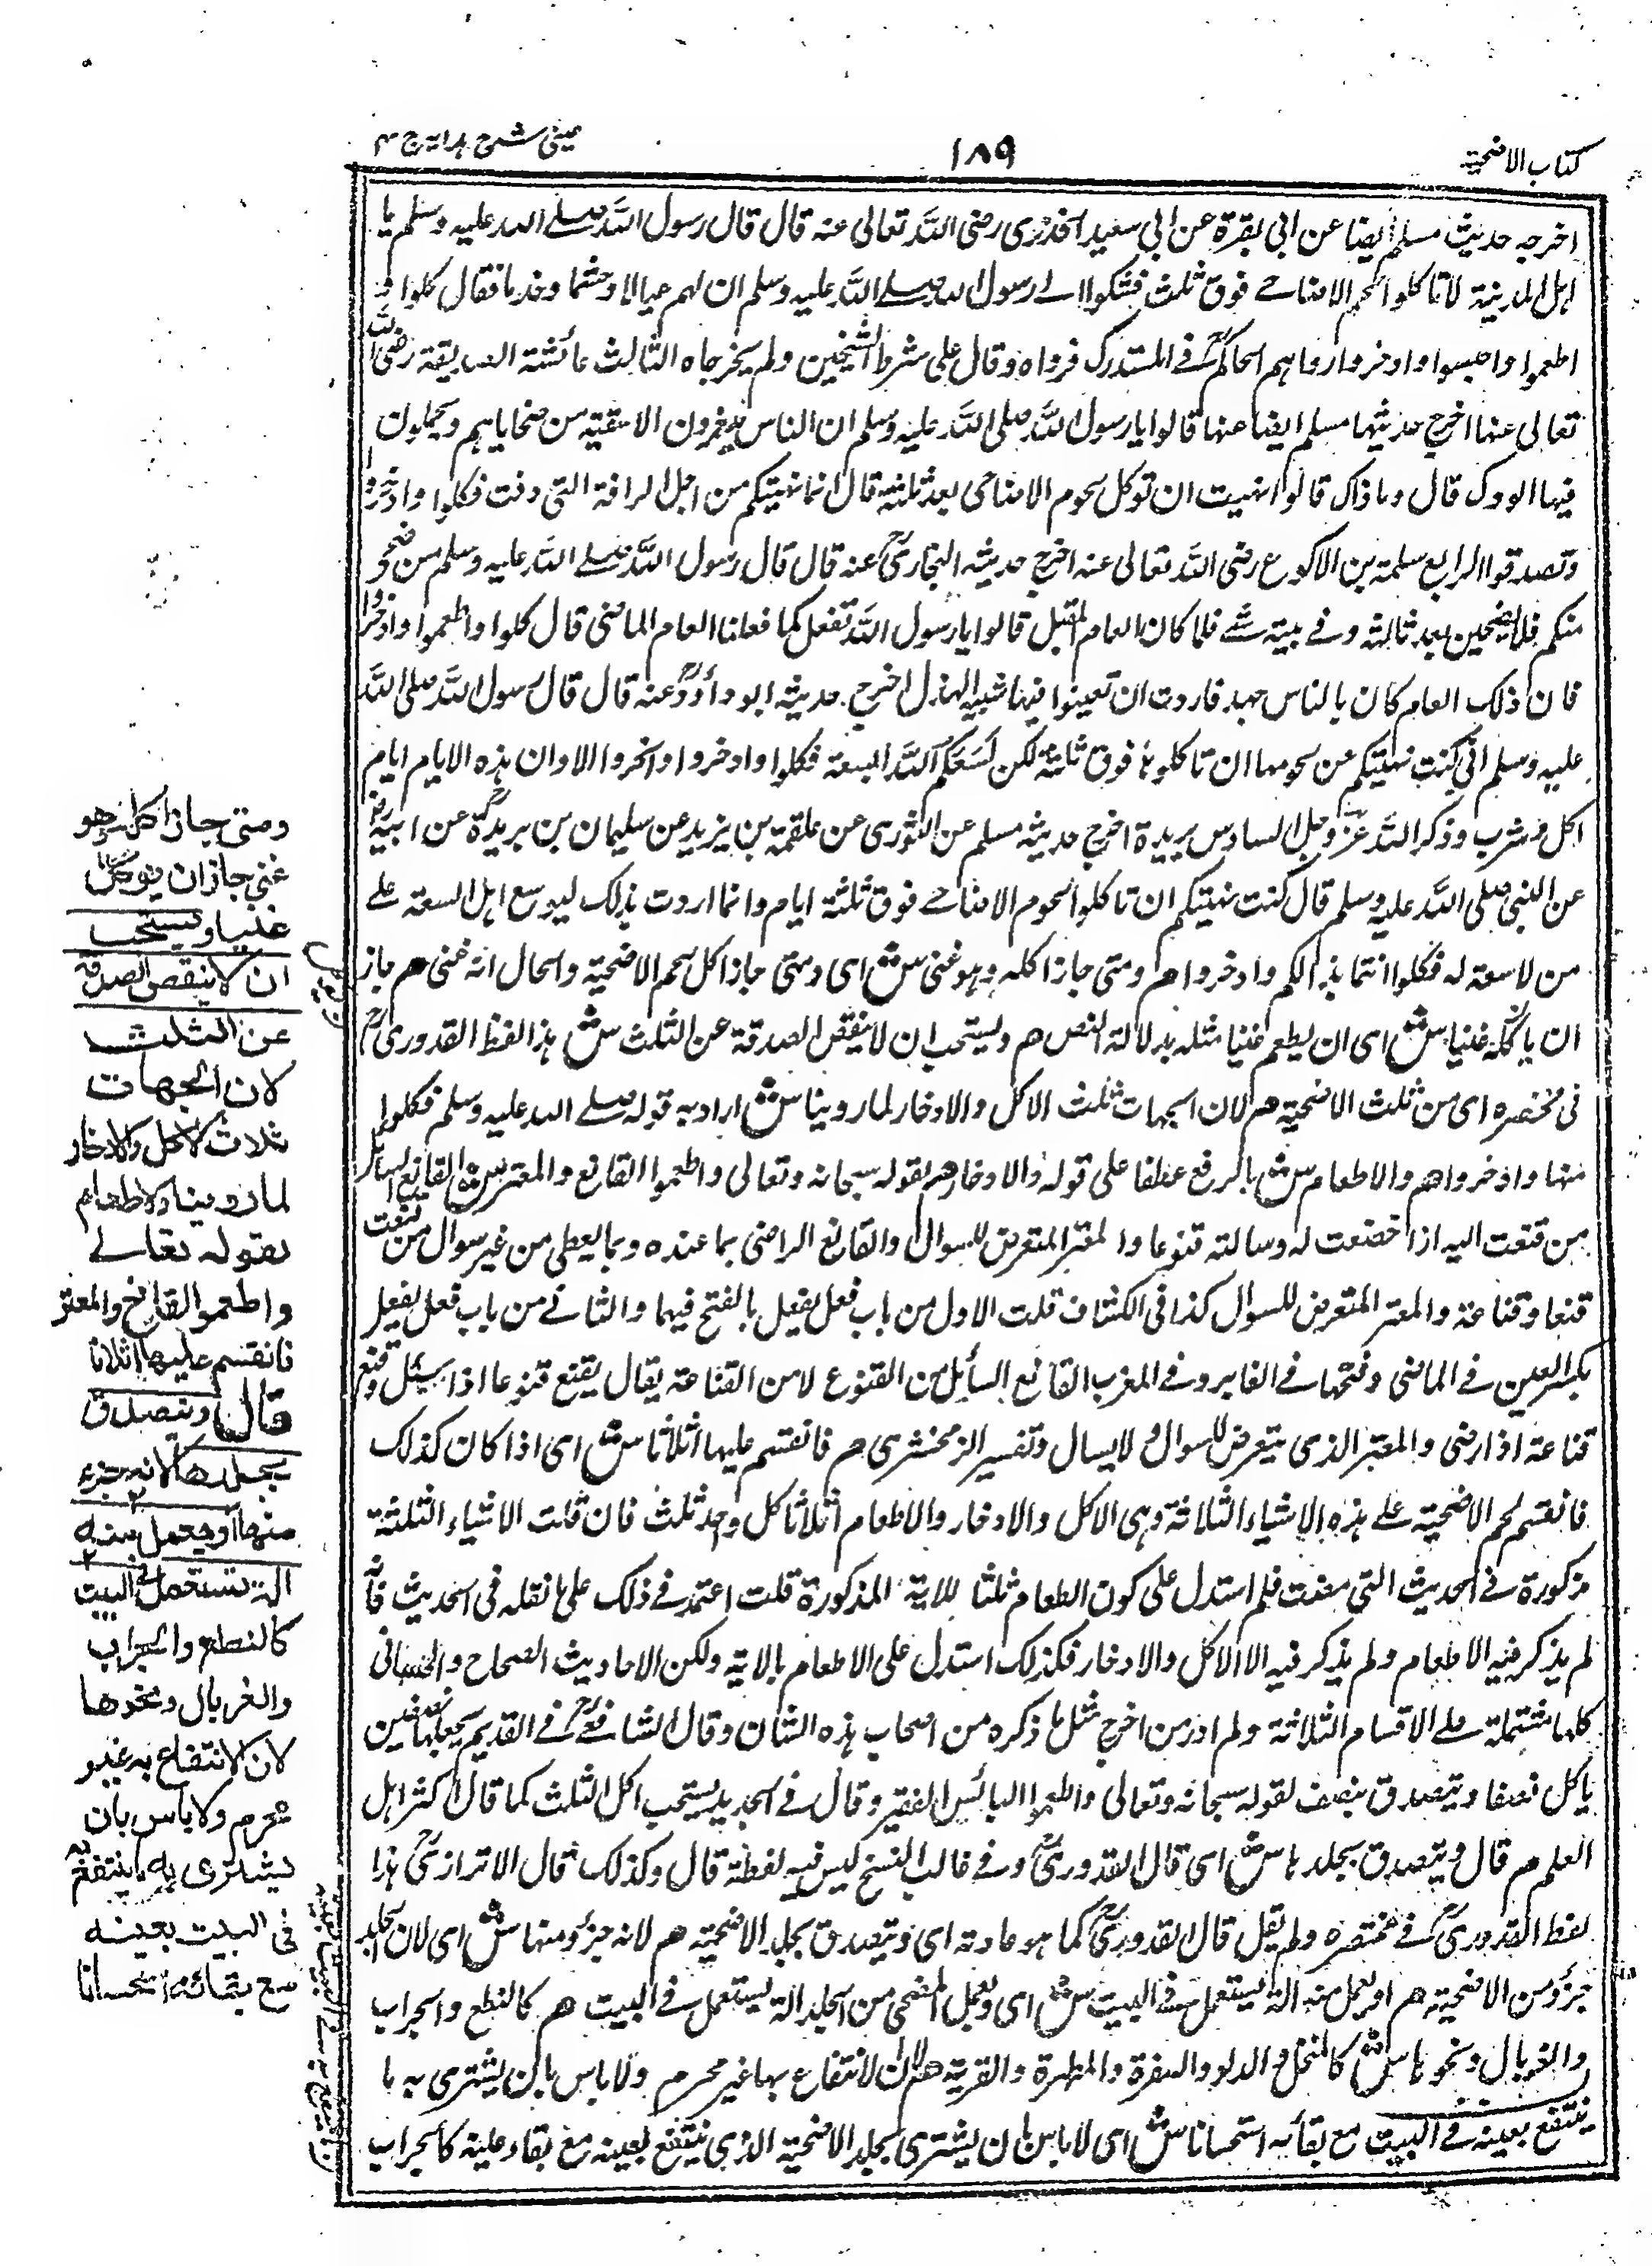 كتاب الاضحية
١٨٩
عينى شرح هداية ج ٤
اخرجه حديث مسلم ايضا عن ابى بقرة عن ابى سعيد الخدرى رضى الله تعالى عنه قال قال رسول الله صلے الله عليه وسلم يا
اهل المدينة لا تاكلوا لحم الاضاحے فوق ثلث فشكوا الے رسول الله صلے الله عليه وسلم ان لهم عيالا وحشما وخدما فقال كلوا و
اطعموا واحبسوا وادخروا رواهم الحاكم فے المستدرك فرواه وقال على شرط الشيخين ولم يخرجاه الثالث عائشة الصديقة رضى الله
تعالى عنها اخرج حديثها مسلم ايضا عنها قالوا يا رسول الله صلى الله عليه وسلم ان الناس الاسقية من ضحاياهم ويجملون
فيها الودك قال وما ذاك قالوا نهيت ان توكل لحوم الاضاحى بعد ثلثة قال انما نهيتكم من اجل الرافة التى دفت فكلوا وادخروا
وتصدقوا الرابع سلمة بن الاكوع رضى الله تعالى عنه اخرج حديثه البخارى عنه قال قال رسول الله صلے الله عليه وسلم من ضحى
منكم فلا يصبحن بعد ثالثة وفے بيته شے فلما كان العام المقبل قالوا يا رسول الله نفعل كما فعلنا العام الماضى قال كلوا واطعموا وادخروا
فان ذلك العام كان بالناس جهد فاردت ان تعينوا فيها نبيه الهذل اخرج حديثه ابو داؤد عنه قال قال رسول الله صلى الله
عليه وسلم انى كنت نهيتكم عن لحومها ان تاكلوها فوق ثلثة لكن تسعكم الله السعة فكلوا وادخروا واتجروا الا وان هذه الايام ايام
اكل وشرب وذكر الله عز وجل السادس بريدة اخرج حديثه مسلم عن الثورى عن علقمة بن يزيد عن سليمان بن بريدة عن ابيه
عن النبى صلى الله عليه وسلم قال كنت نهيتكم ان تاكلوا لحوم الاضاحے فوق ثلثة ايام وانما اردت بذلك ليوسع اهل السعة علے
من لا سعة له فكلوا انتما بذالكم وادخروا هم ومتى جاز اكله وهو غنى ش اى ومتى جاز اكل لحم الاضحية والحال انه غنى هم جاز
ان ياكله غنيا ش اى ان يطعم غنيا مثله بدلالة النص هم ويستحب ان لا ينقص الصدقة عن الثلث ش هذا لفظ القدورى
فى مختصره اى من ثلث الاضحية هم لان الجهات ثلث الاكل والادخار لما روينا ش اراد به قوله صلے الله عليه وسلم فكلوا
منها وادخروا هم والاطعام ش بالرفع عطفا على قوله والادخار هم لقوله سبحانه وتعالى واطعموا القانع والمعتر ش القانع السائل
من قنعت اليه اذا خضعت له وسالته قنوعا والمعتر المتعرض للسوال والقانع الراضى بما عنده وبما يعطى من غير سوال من قنعت
قنعا وقناعة والمعتر المتعرض للسوال كذا فى الكشاف قلت الاول من باب فعل يفعل بالفتح فيهما والثانے من باب فعل يفعل
بكسر العين فے الماضى وفتحها فے الغابر وفے المغرب القانع السائل من القنوع لا من القناعة يقال يقنع قنوعا اذا سئل وقنع
قناعة اذا رضى والمعتر الذى يتعرض للسوال ولا يسال وتفسير الزمخشرى هم فانقسم عليها اثلاثا ش اى اذا كان كذلك
فانقسم لحم الاضحية علے هذه الاشياء الثلاثة وهى الاكل والادخار والاطعام اثلاثا كل واحد ثلث فان قلت الاشياء الثلثة
مذكورة فے الحديث التى مضت فلم استدل على كون الطعام ثلثا للاية المذكورة قلت اعتمد فے ذلك على ما نقله فى الحديث فانه
لم يذكر فيه الاطعام ولم يذكر فيه الا الاكل والادخار فكذلك استدل على الاطعام بالاية ولكن الاحاديث الصحاح والحسانى
كلها مشتملة علے الاقسام الثلاثة ولم ادر من اخرج مثل ما ذكره من اصحاب هذه الشان وقال الشافعے فے القديم يجعلها نصفين
ياكل نصفا ويتصدق بنصف لقوله سبحانه وتعالى واطعموا البائس الفقير وقال فے الجديد يستحب اكل الثلث كما قال اكثر اهل
العلم هم قال ويتصدق بجلدها ش اى قال القدورى وفے غالب النسخ ليس فيه لفظة قال وكذلك قال الاترازى هذا
لفظ القدورى فے مختصره ولم يقل قال القدورى كما هو عادته اى ويتصدق بجلد الاضحية هم لانه جزؤ منها ش اى لان الجلد
جزؤ من الاضحية هم او يعمل منه الة يستعمل فے البيت ش اى ويعمل المضحى من الجلد الة يستعمل فے البيت هم كالنطع والجراب
والغربال ونحوها ش كالمنخل والدلو والسفرة والمطهرة والقربة هم لان الانتفاع بها غير محرم ولا باس بان يشترى به ما
ينتفع بعينه فے البيت مع بقائه استحسانا ش اى لا باس بان يشترى بجلد الاضحية الذى ينتفع بعينه مع بقاء عينه كالجراب
ومتى جاز اكله وهو
غنى جاز ان يوكل
غنيا ويستحب
ان لا ينقص الصدقة
عن الثلث
لان الجهات
ثلاث الاكل والادخار
لما روينا والاطعام
لقوله تعالے
واطعموا القانع والمعتر
فانقسم عليها اثلاثا
قال ويتصدق
بجلدها لانه جزء
منها او يعمل منه
الة تستعمل فى البيت
كالنطع والجراب
والغربال ونحوها
لان الانتفاع به غير
محرم ولا باس بان
يشترى به ما ينتفع به
فى البيت بعينه
مع بقائه استحسانا